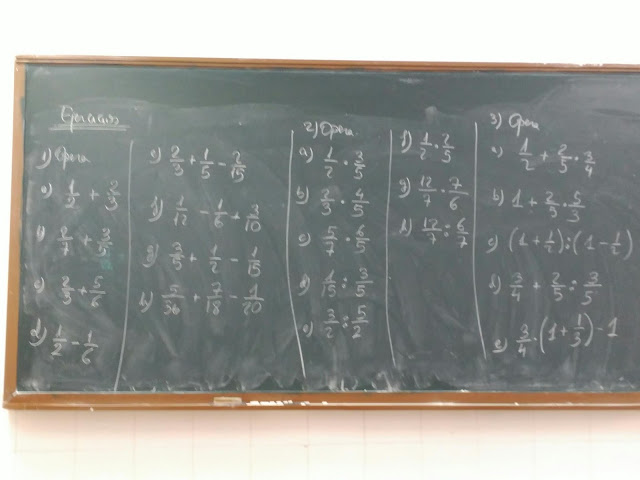 Ejercicios
1) Opera
a) 1/2 + 2/3
b) 2/7 + 3/5
c) 2/3 + 5/6
d) 1/2 - 1/6
e) 2/3 + 1/5 - 2/15
f) 1/12 - 1/6 + 3/10
g) 3/5 + 1/2 - 1/15
h) 5/36 + 7/18 - 1/20
2) Opera
a) 1/2 · 3/5
b) 2/3 · 4/5
c) 5/7 · 6/5
d) 1/15 : 3/5
e) 3/2 : 5/2
f) 1/2 · 2/5
g) 12/7 · 7/6
h) 12/7 : 6/7
3) Opera
a) 1/2 + 2/5 · 3/4
b) 1 + 2/3 · 5/3
c) (1 + 1/2) : (1 - 1/2)
d) 3/4 + 2/5 : 3/5
e) 3/4 · (1 + 1/3) - 1